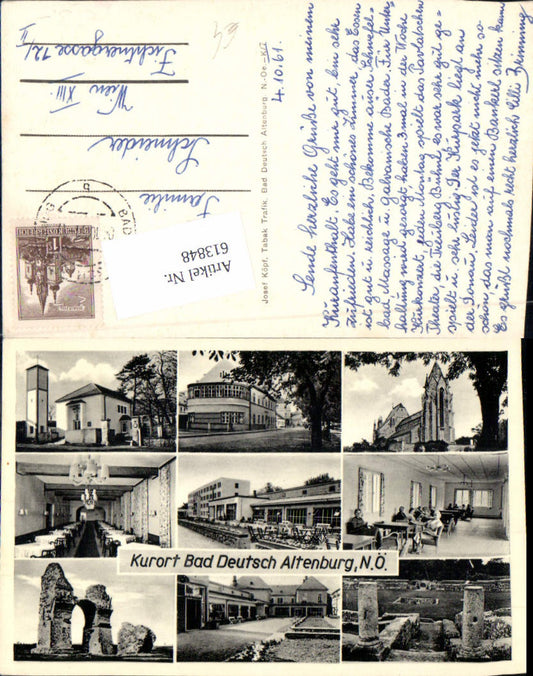 4.10.61.
Sende herzliche Grüße von meinem
Kuraufenthalt. Es geht mir gut, bin sehr
zufrieden. Habe ein schönes Zimmer, das Essen
ist gut u. reichlich. Bekomme außer Schwefel-
bad, Massage u. galvanische Bäder. Für Unter-
haltung wird gesorgt haben 2mal in der Woche
Kurkonzert, jeden Montag spielt das
Theater, die Bühne. Es war sehr gut ge-
spielt u. sehr lustig. Der Kurpark liegt an
der Donau. Leider ist es jetzt nicht mehr so
schön das man auf einem Bankerl sitzen kann
Es grüßt nochmals recht herzlich
Familie
Schneider
Wien XIII.
72/
II
Josef Köpf, Tabak Trafik, Bad Deutsch Altenburg N.-Oe.
BAD
Artikel Nr.
613848
Kurort Bad Deutsch Altenburg, N.Ö.